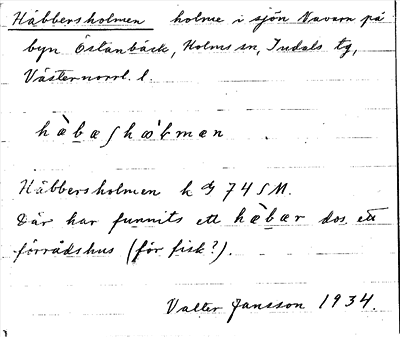 Häbbersholmen holme i sjön Navarn på
byn Östanbäck, Holms sn, Indals tg,
Västernorrl. l.
hæ̀bæʃhæ̀ɫmæn .
Häbbersholmen k 74 SM.
Där har funnits ett hæ̀bær dvs. ett
förrådshus (för fisk?).
Valter Jansson 1934.